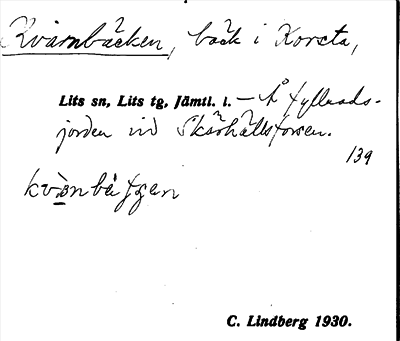 Kvarnbäcken, bäck i Korsta,
Lits sn, Lits tg, Jämtl. l. – Å fyllnads-
jorden vid Skärhällsforsen.
139
C. Lindberg 1930.